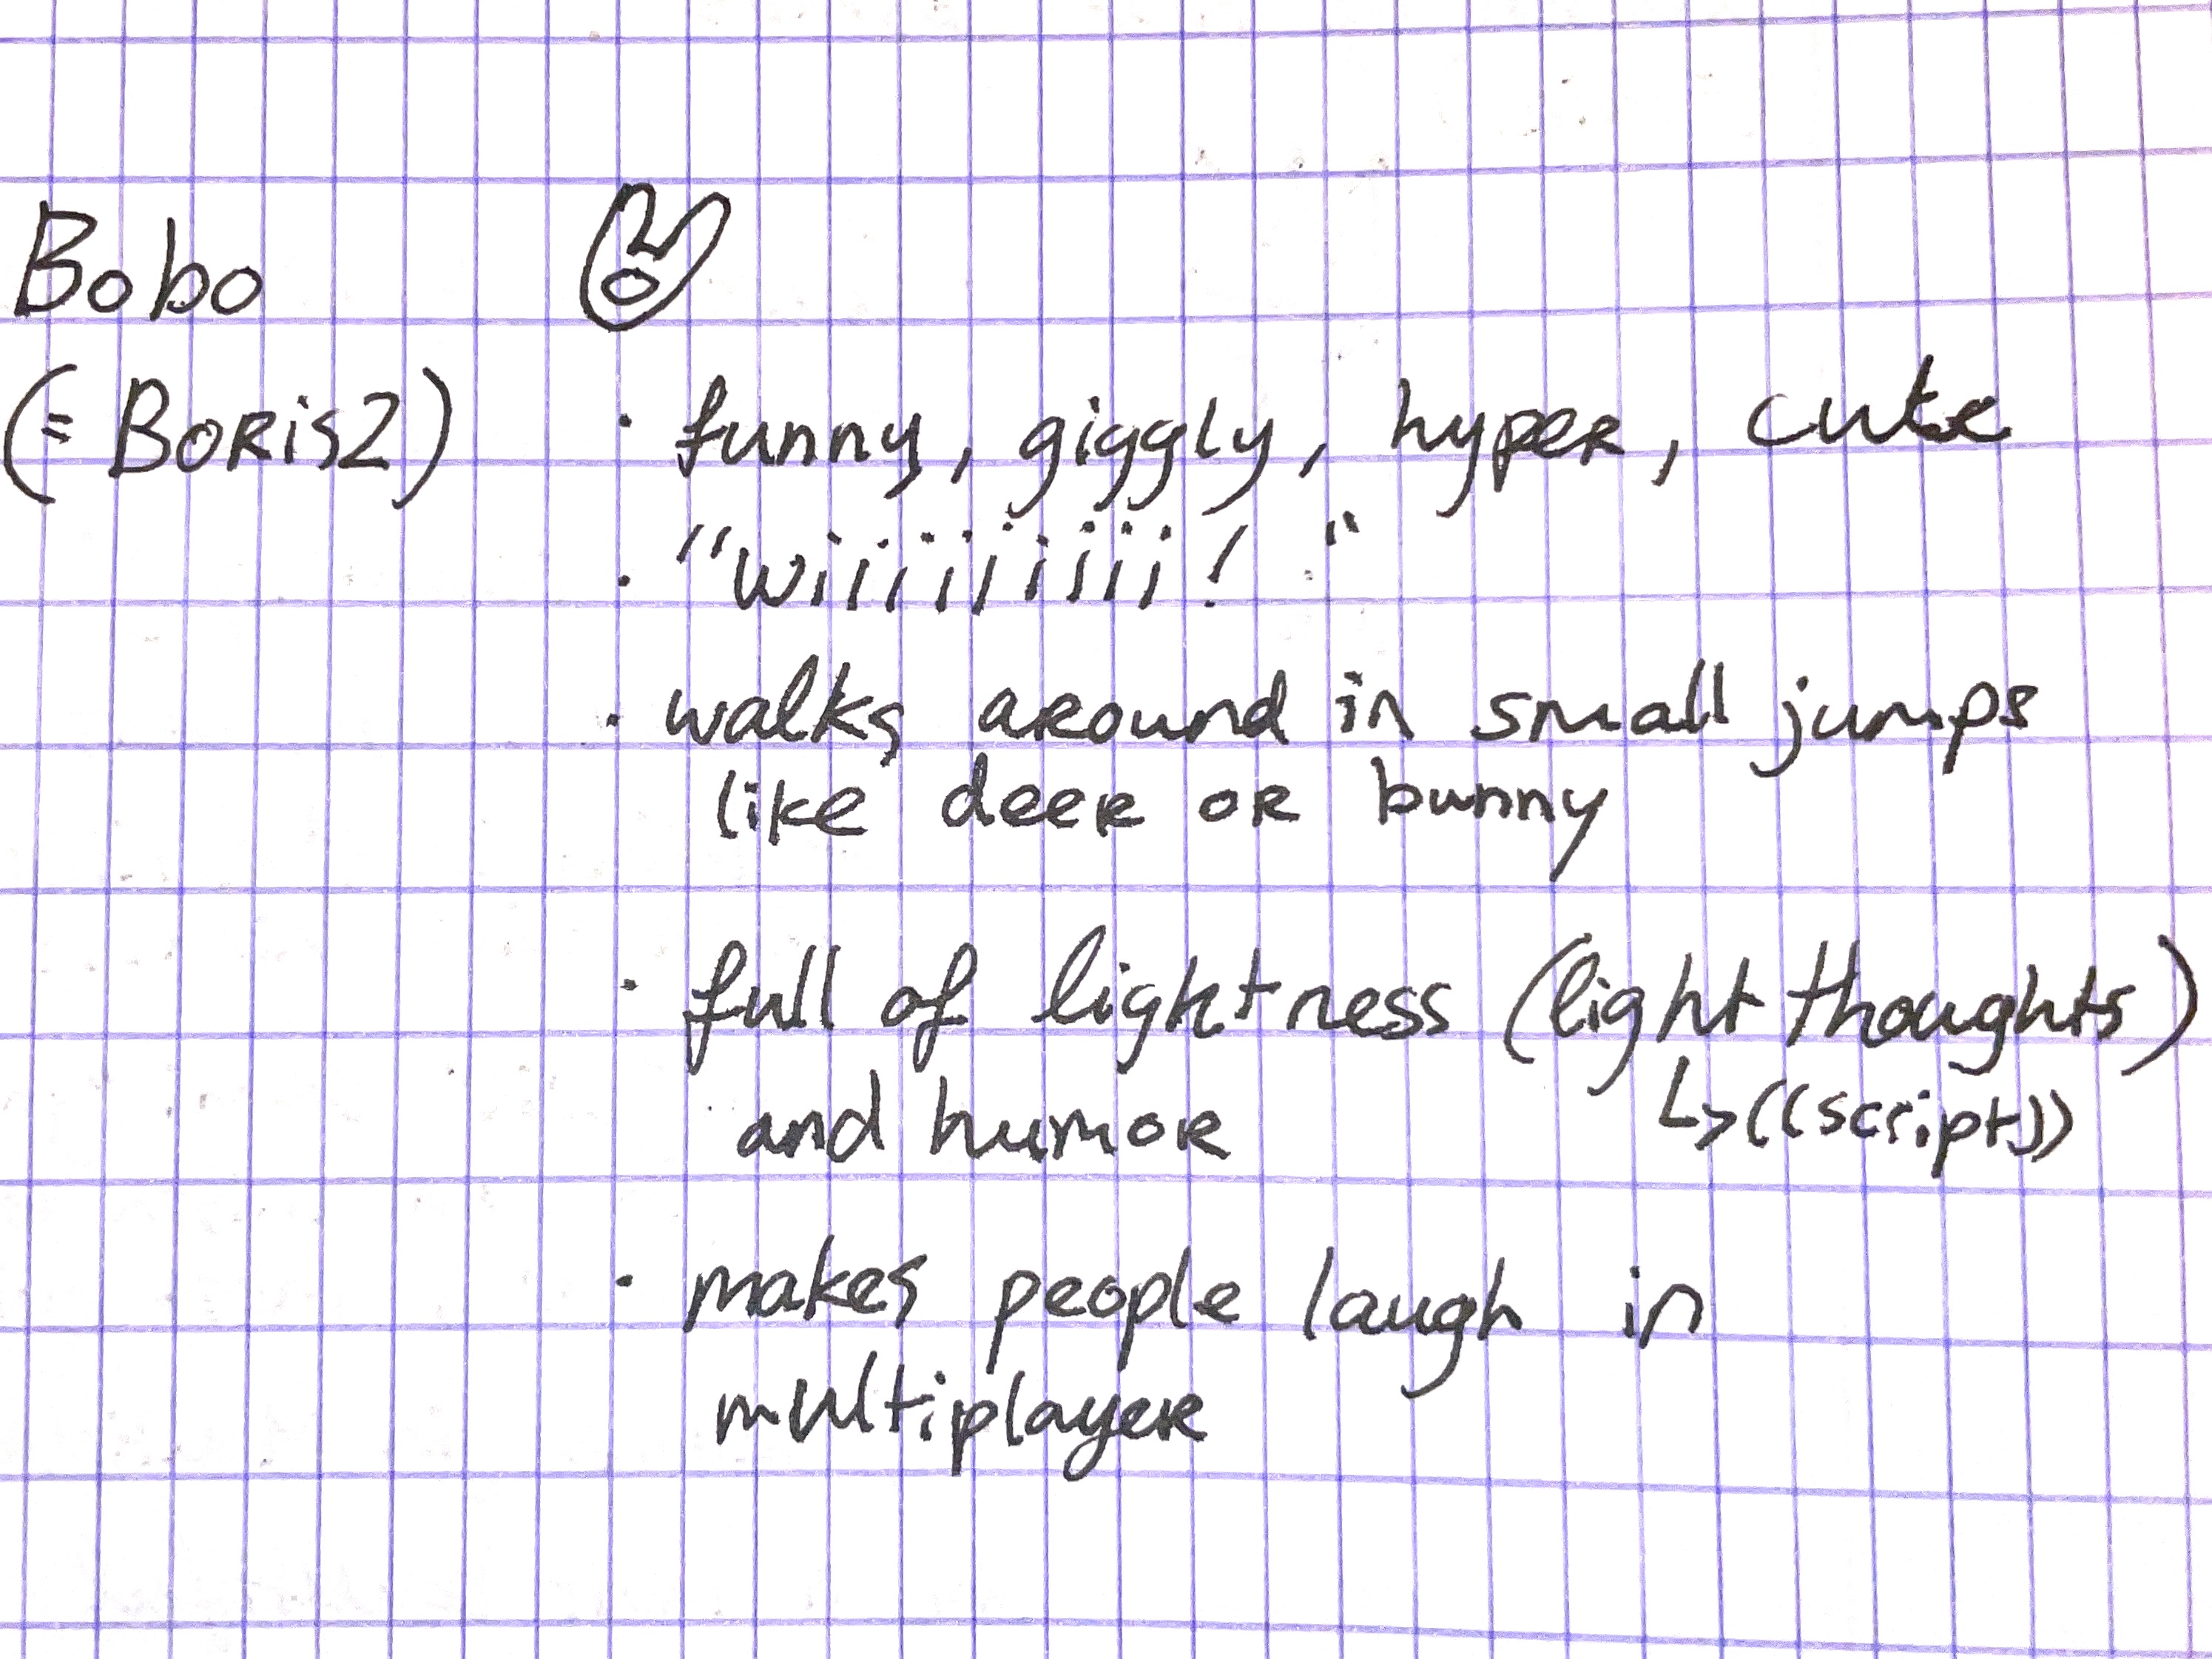 Bobo
(= BORis2)
· funny, giggly, hypeR, cute
· "wiiiiiiiii! "
· walks aRound in small jumps
like deeR oR bunny
· full of lightness (light thoughts)
and humoR ↳((script))
· makes people laugh in
multiplayeR